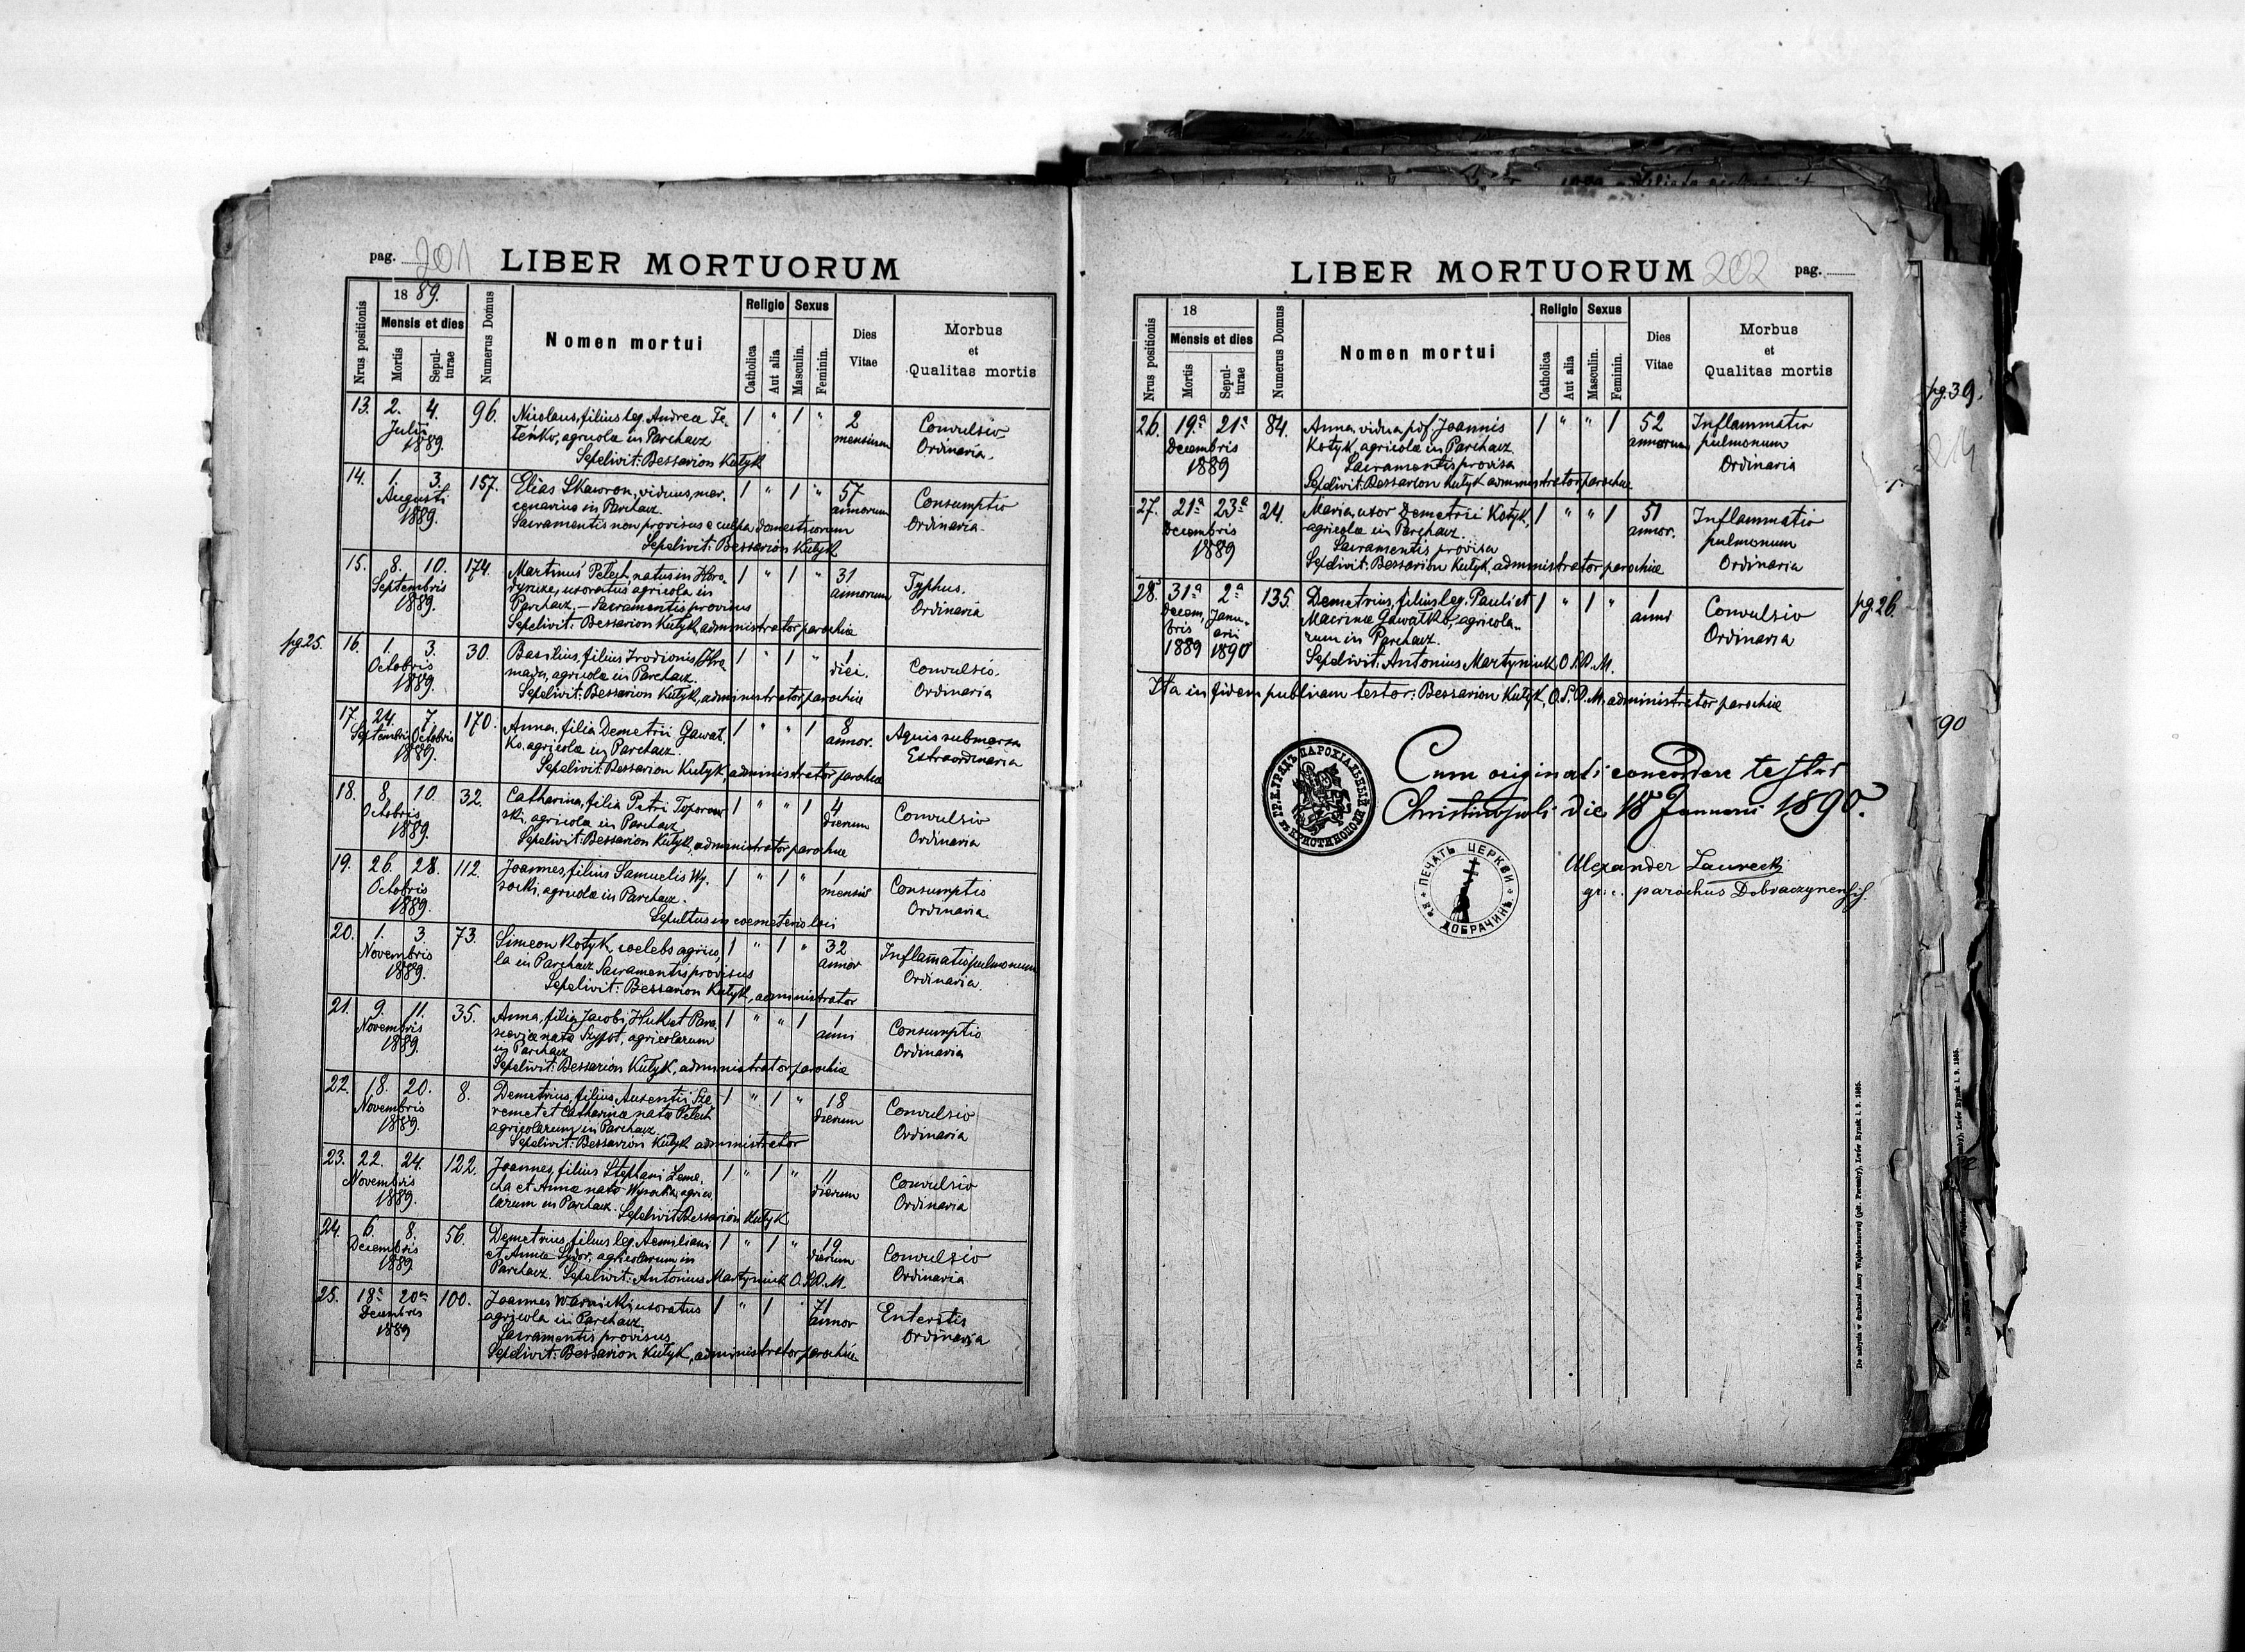 pag. 201 LIBER MORTUORUM
Nrus positionis
18 89.
Mensis et dies
Mortis
Sepul-
turae
Numerus Domus
Nomen mortui
Religio
Catholica
Aut alia
Sexus
Masculin.
Feminin.
Dies
Vitae
Morbus
et
Qualitas mortis
13. 2. 4. 96. Nicolaus, filius leg. Andreae Te- 1 " 1 " 2 Convulsio
Julii teńko, agricolae in Parchacz mensium Ordinaria.
1889. Sepelivit: Bessarion Kułyk
14. 1. 3. 157. Elias Skawron, viduus, mer- 1 " 1 " 57 Consumptio
Augusti cenarius in Parchacz. annorum Ordinaria.
1889. Sacramentis non provisus e culpa domesticorum
Sepelivit: Bessarion Kułyk
15. 8. 10. 174. Martinus Petech, natus in 1 " 1 " 31 Typhus.
Septembris uxoratus agricola in annorum Ordinaria
1889. Parchacz, – Sacramentis provisus
Sepelivit: Bessarion Kułyk, administrator parochiae
pg. 25. 16. 1. 3. 30. Basilius, filius Irodionis Hro- 1 " 1 " 1 Convulsio.
Octobris agricolae in Parchacz. diei. Ordinaria
1889. Sepelivit: Bessarion Kułyk, administrator parochiae
17. 24. 7. 170. Anna, filia Demetrii Gawat- 1 " " 1 8 Aquis submersa
Septembris Octobris ko, agricolae in Parchacz. annor. Extraordinaria
1889. Sepelivit: Bessarion Kułyk, administrator parochiae
18. 8. 10. 32. Catharina, filia Petri Toporow- 1 " " 1 4 Convulsio
Octobris ski, agricolae in Parchacz dierum Ordinaria
1889. Sepelivit: Bessarion Kułyk, administrator parochiae
19. 26. 28. 112. Joannes, filius Samuelis Wy- 1 " 1 " 1 Consumptio
Octobris socki, agricolae in Parchacz. mensis Ordinaria.
1889. Sepultus in coemeterio loci
20. 1. 3. 73. Simeon Kotyk, coelebs agrico- 1 " 1 " 32 Inflammatio pulmonum
Novembris la in Parchacz Sacramentis provisus annor Ordinaria.
1889. Sepelivit: Bessarion Kułyk, administrator
21. 9. 11. 35. Anna, filia Jacobi Huk et Para- 1 " " 1 1 Consumptio
Novembris nata agricolarum anni Ordinaria
1889. in Parchacz
Sepelivit: Bessarion Kułyk, administrator parochiae
22. 18. 20. 8. Demetrius, filius Auxentii Sze- 1 " 1 " 18 Convulsio
Novembris remet et Catharinae nata Petech dierum Ordinaria
1889. agricolarum in Parchacz.
Sepelivit: Bessarion Kułyk administrator
23. 22. 24. 122. Joannes, filius Stephani 1 " 1 " 11 Convulsio
Novembris et Annae nata Wysocka, agrico- dierum Ordinaria
1889. larum in Parchacz. Sepelivit Bessarion Kułyk
24. 6. 8. 56. Demetrius, filius leg. Aemiliani 1 " 1 " 19 Convulsio
Decembris et Annae Sydor, agricolarum in dierum Ordinaria
1889 Parchacz. Sepelivit: Antonius Martyniuk O.S.B.M.
25. 18ª 20ª 100. Joannes Warnicki uxoratus 1 " 1 " 71 Enteritis
Decembris agricola in Parchacz annor Ordinaria
1889 Sacramentis provisus
Sepelivit: Bessarion Kułyk, administrator parochiae
LIBER MORTUORUM 202 pag.
Nrus positionis
18
Mensis et dies
Mortis
Sepul-
turae
Numerus Domus
Nomen mortui
Religio
Catholica
Aut alia
Sexus
Masculin.
Feminin.
Dies
Vitae
Morbus
et
Qualitas mortis
26. 19ª 21ª 84. Anna, vidua p. def. Joannis 1 " " 1 52 Inflammatio
Decembris Kotyk, agricolae in Parchacz annorum pulmonum
1889 Sacramentis provisa Ordinaria
Sepelivit: Bessarion Kułyk administrator parochiae
27. 21ª 23ª 24. Maria, uxor Demetrii Kotyk, 1 " " 1 51 Inflammatio
Decembris agricolae in Parchacz. annor. pulmonum
1889 Sacramentis provisa Ordinaria
Sepelivit: Bessarion Kułyk, administrator parochiae
28. 31ª 2ª 135. Demetrius, filius leg. Pauli et 1 " 1 " 1 Convulsio pg. 26.
Decem- Janu- Macrinae Gawatko, agricola- anni Ordinaria
bris arii rum in Parchacz.
1889 1890 Sepelivit: Antonius Martyniuk, O.S.B.M.
Ita in fidem publicam testor: Bessarion Kułyk, O.S.B.M. administrator parochiae
Cum originali concordare testor
Christinopoli die 18 Januarii 1890.
Alexander Laurecki
gr. c. parochus Dobraczynensis
ГР. К. УРЯДЪ ПАРОХІАЛЬНЫЙ въ КРИСТИНОПОЛИ
ПЕЧАТЬ ЦЕРКВИ въ ДОБРАЧИНЪ
pg. 39.
90